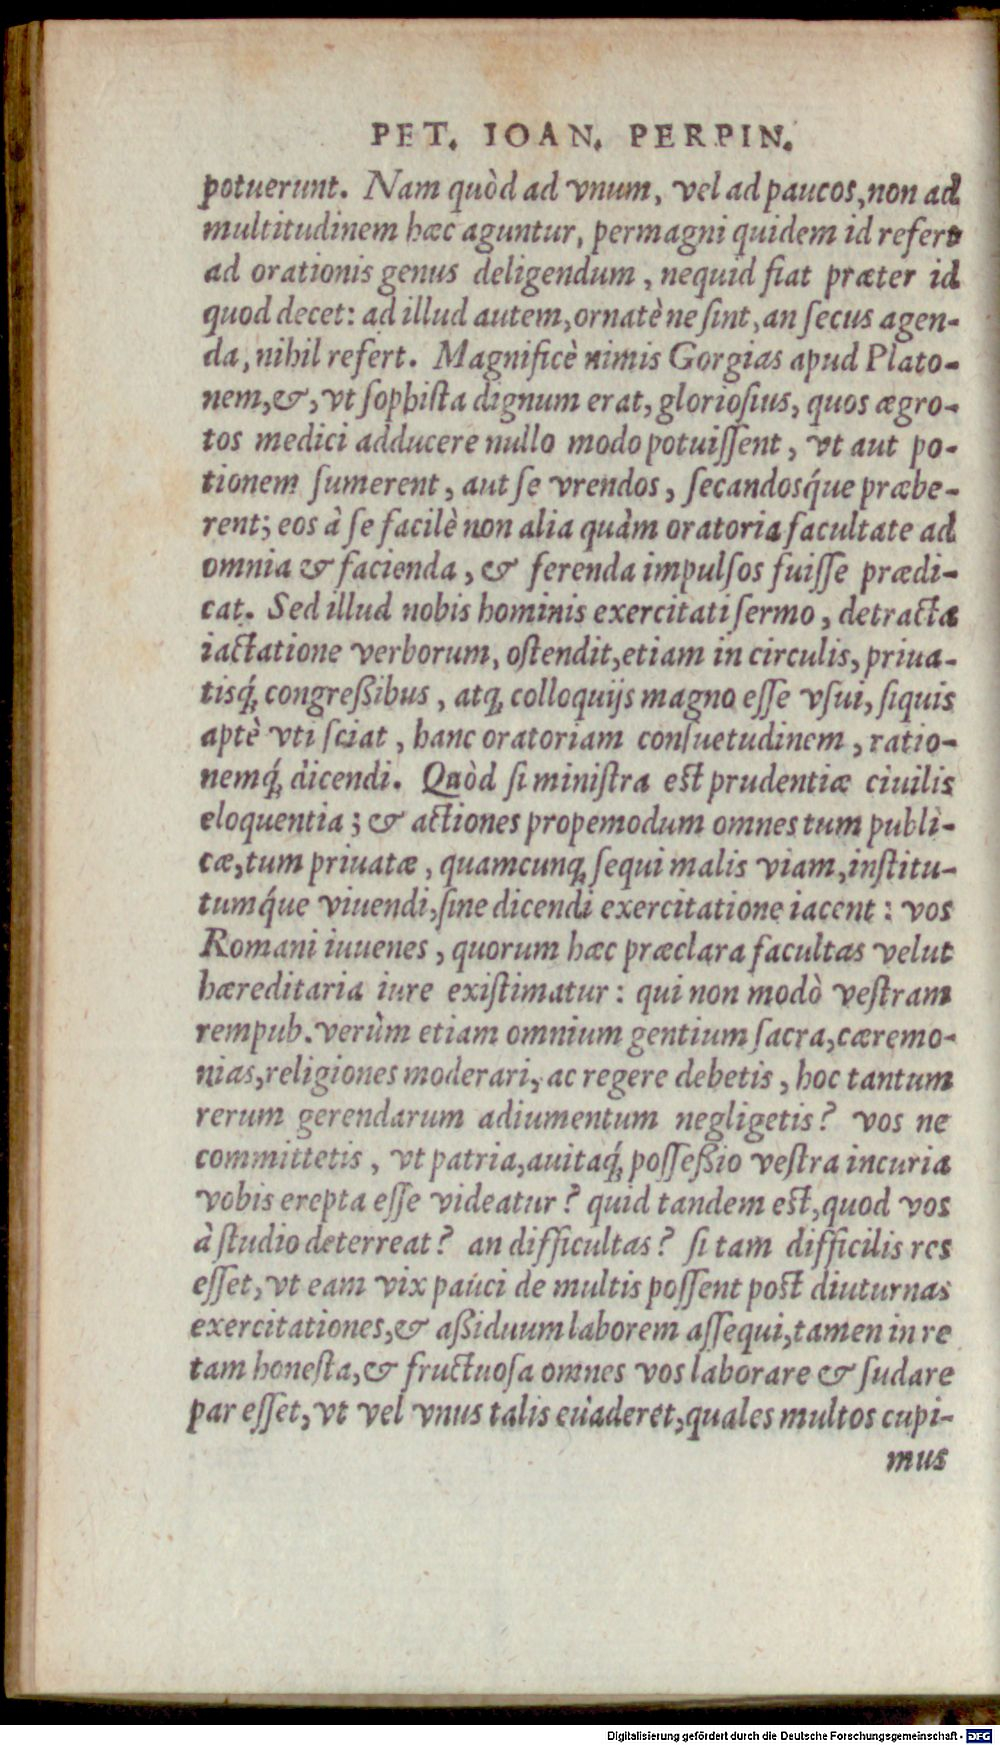 PET. IOAN. PERPIN.
potuerunt. Nam quòd ad vnum, vel ad paucos, non ad
multitudinem hæc aguntur, permagni quidem id refert
ad orationis genus deligendum, nequid fiat præter id
quod decet: ad illud autem, ornatè ne ſint, an ſecus agen-
da, nihil refert. Magnificè nimis Gorgias apud Plato-
nem, &, vt ſophiſta dignum erat, glorioſius, quos ægro-
tos medici adducere nullo modo potuiſſent, vt aut po-
tionem ſumerent, aut ſe vrendos, ſecandosq́ue præbe-
rent; eos à ſe facilè non alia quàm oratoria facultate ad
omnia & facienda, & ferenda impulſos fuiſſe prædi-
cat. Sed illud nobis hominis exercitati ſermo, detracta
iactatione verborum, oſtendit, etiam in circulis, priua-
tisq́; congreßibus, atq; colloquijs magno eſſe vſui, ſiquis
aptè vti ſciat, hanc oratoriam conſuetudinem, ratio-
nemq́; dicendi. Quòd ſi miniſtra eſt prudentiæ ciuilis
eloquentia; & actiones propemodum omnes tum publi-
cæ, tum priuatæ, quamcunq; ſequi malis viam, inſtitu-
tumq́ue viuendi, ſine dicendi exercitatione iacent: vos
Romani iuuenes, quorum hæc præclara facultas velut
hæreditaria iure exiſtimatur: qui non modò veſtram
rempub. verùm etiam omnium gentium ſacra, cæremo-
nias, religiones moderari, ac regere debetis, hoc tantum
rerum gerendarum adiumentum negligetis? vos ne
committetis, vt patria, auitaq́; poſſeßio veſtra incuria
vobis erepta eſſe videatur? quid tandem eſt, quod vos
à ſtudio deterreat? an difficultas? ſi tam difficilis res
eſſet, vt eam vix pauci de multis poſſent poſt diuturnas
exercitationes, & aßiduum laborem aſſequi, tamen in re
tam honeſta, & fructuoſa omnes vos laborare & ſudare
par eſſet, vt vel vnus talis euaderet, quales multos cupi-
mus
Digitalisierung gefördert durch die Deutsche Forschungsgemeinschaft - DFG